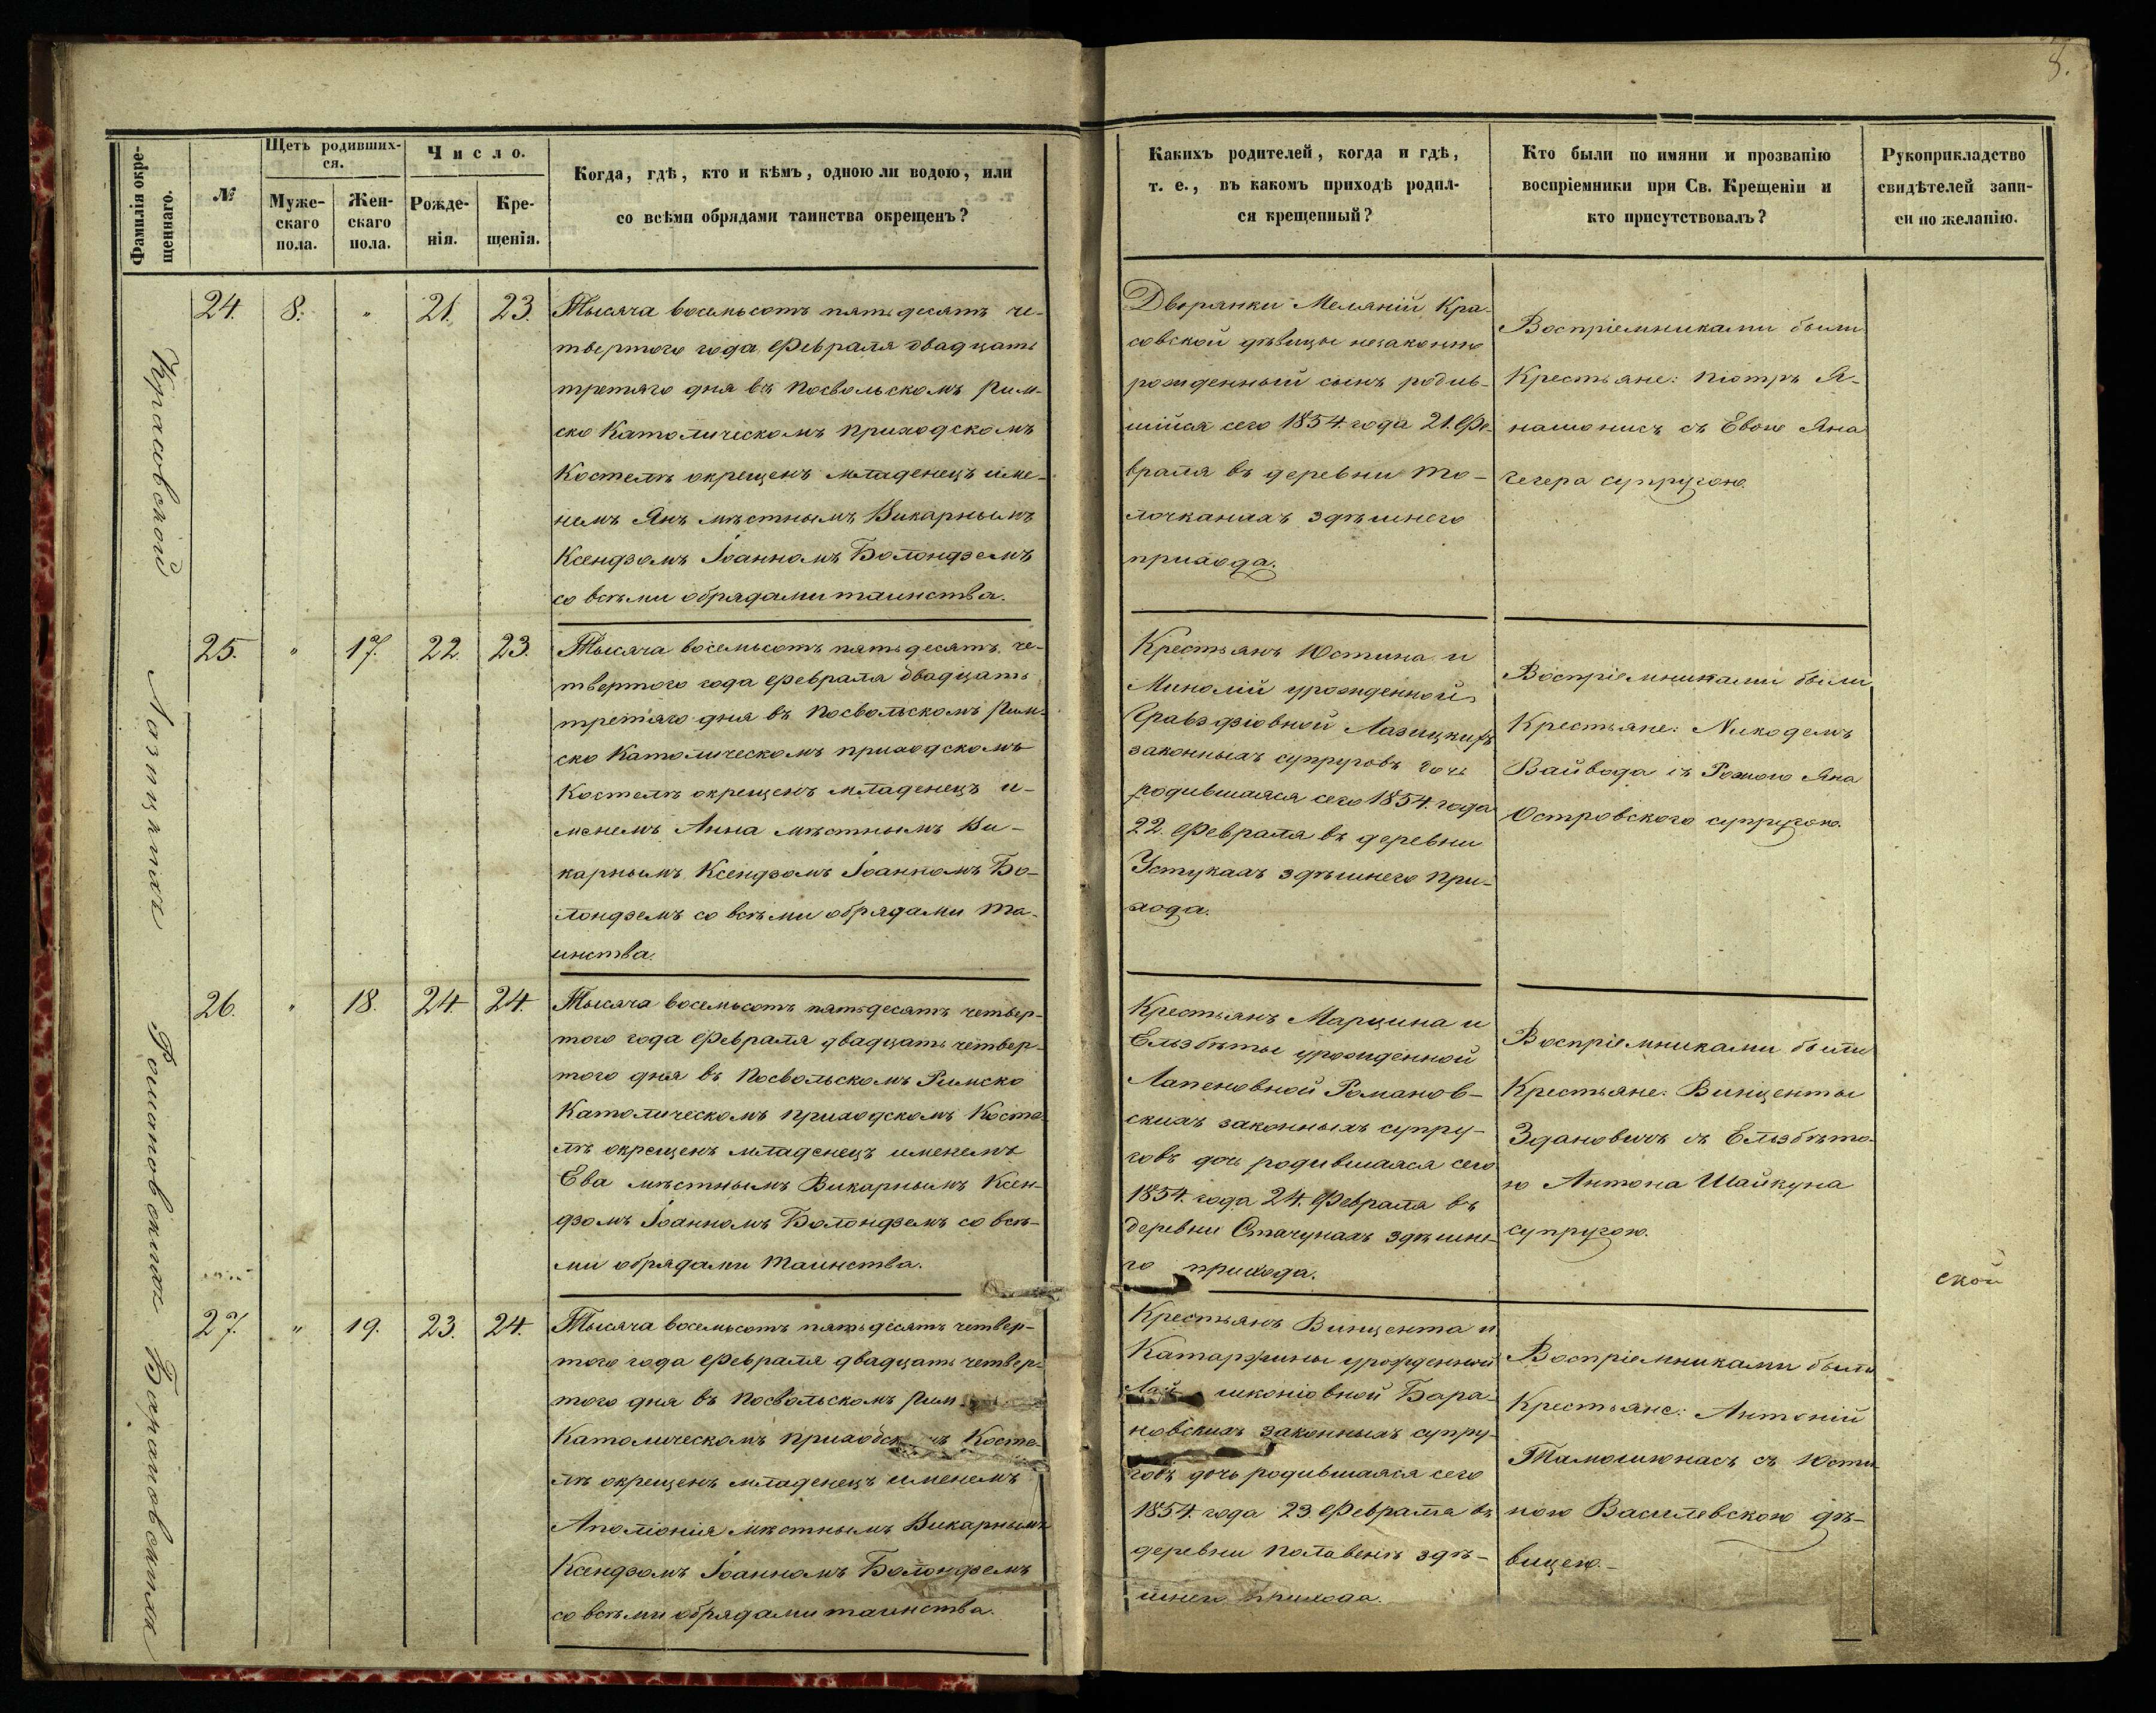 8.
Фамилія окре-
щеннаго.
№
Щетъ родивших-
ся.
Муже-
скаго
пола.
Жен-
скаго
пола.
Число.
Рожде-
нія.
Кре-
щенія.
Когда, гдѣ, кто и кѣмъ, одною ли водою, или
со всѣми обрядами таинства окрещенъ?
Какихъ родителей, когда и гдѣ,
т. е., въ какомъ приходѣ родил-
ся крещенный?
Кто были по имяни и прозванію
воспріемники при Св. Крещеніи и
кто присутствовалъ?
Рукоприкладство
свидѣтелей запи-
си по желанію.
Красовской
24. 8. " 21. 23.
Тысяча восемьсотъ пятьдесятъ че-
твертого года Февраля двадцать
третяго дня въ Посвольскомъ Рим-
ско Католическомъ приходскомъ
Костелѣ окрещенъ младенецъ име-
немъ Янъ мѣстнымъ Викарнымъ
Ксендзомъ Іоанномъ Болондземъ
со всѣми обрядами таинства.
Дворянки Меляніи Кра-
совской дѣвицы незаконно
рожденный сынъ родив-
шійся сего 1854. года 21. Фе-
враля въ деревни То-
лочканахъ здѣшнего
прихода.
Воспріемниками были
Крестьяне: Піотръ Я-
нашонисъ съ Евою Яна
Чечера супругою.
Лазицкихъ
25. " 17. 22. 23.
Тысяча восемьсотъ пятьдесятъ че-
твертого года Февраля двадцать
третяго дня въ Посвольскомъ Рим-
ско Католическомъ приходскомъ
Костелѣ окрещенъ младенецъ и-
менемъ Анна мѣстнымъ Ви-
карнымъ Ксендзомъ Іоанномъ Бо-
лондземъ со всѣми обрядами та-
инства.
Крестьянъ Юстина и
урожденной
Лазицкихъ
законныхъ супруговъ дочь
родившаяся сего 1854. года
22. Февраля въ деревни
Устукахъ здѣшнего при-
хода.
Воспріемниками были
Крестьяне: Никодемъ
Вайвода съ Розою Яна
Островского супругою.
Романовскихъ
26. " 18. 24. 24.
Тысяча восемьсотъ пятьдесятъ четвер-
того года Февраля двадцать четвер-
того дня въ Посвольскомъ Римско
Католическомъ приходскомъ Косте-
лѣ окрещенъ младенецъ именемъ
Ева мѣстнымъ Викарнымъ Ксен-
дзомъ Іоанномъ Болондземъ со всѣ-
ми обрядами таинства.
Крестьянъ Марцина и
Ельзбѣты урожденной
Лапеновной Романов-
скихъ законныхъ супру-
говъ дочь родившаяся сего
1854. года 24. Февраля въ
деревни Стачунахъ здѣшне-
го прихода.
Воспріемниками были
Крестьяне: Винценты
Здановичъ съ Ельзбѣто-
ю Антона Шайкуна
супругою.
ской
Барановскихъ
27. " 19. 23. 24.
Тысяча восемьсотъ пятьдесятъ четвер-
того года Февраля двадцать четвер-
того дня въ Посвольскомъ Рим
Католическомъ Косте-
лѣ окрещенъ младенецъ именемъ
Аполіонія мѣстнымъ Викарнымъ
Ксендзомъ Іоанномъ Болондземъ
со всѣми обрядами таинства.
Крестьянъ Винцента и
Катаржины урожденной
шконіовной Бара-
новскихъ законныхъ супру-
говъ дочь родившаяся сего
1854. года 23. Февраля въ
деревни здѣ-
шнего прихода.
Воспріемниками были
Крестьяне: Антоній
Тамошюнасъ съ Юсти-
ною Василевскою дѣ-
вицею.